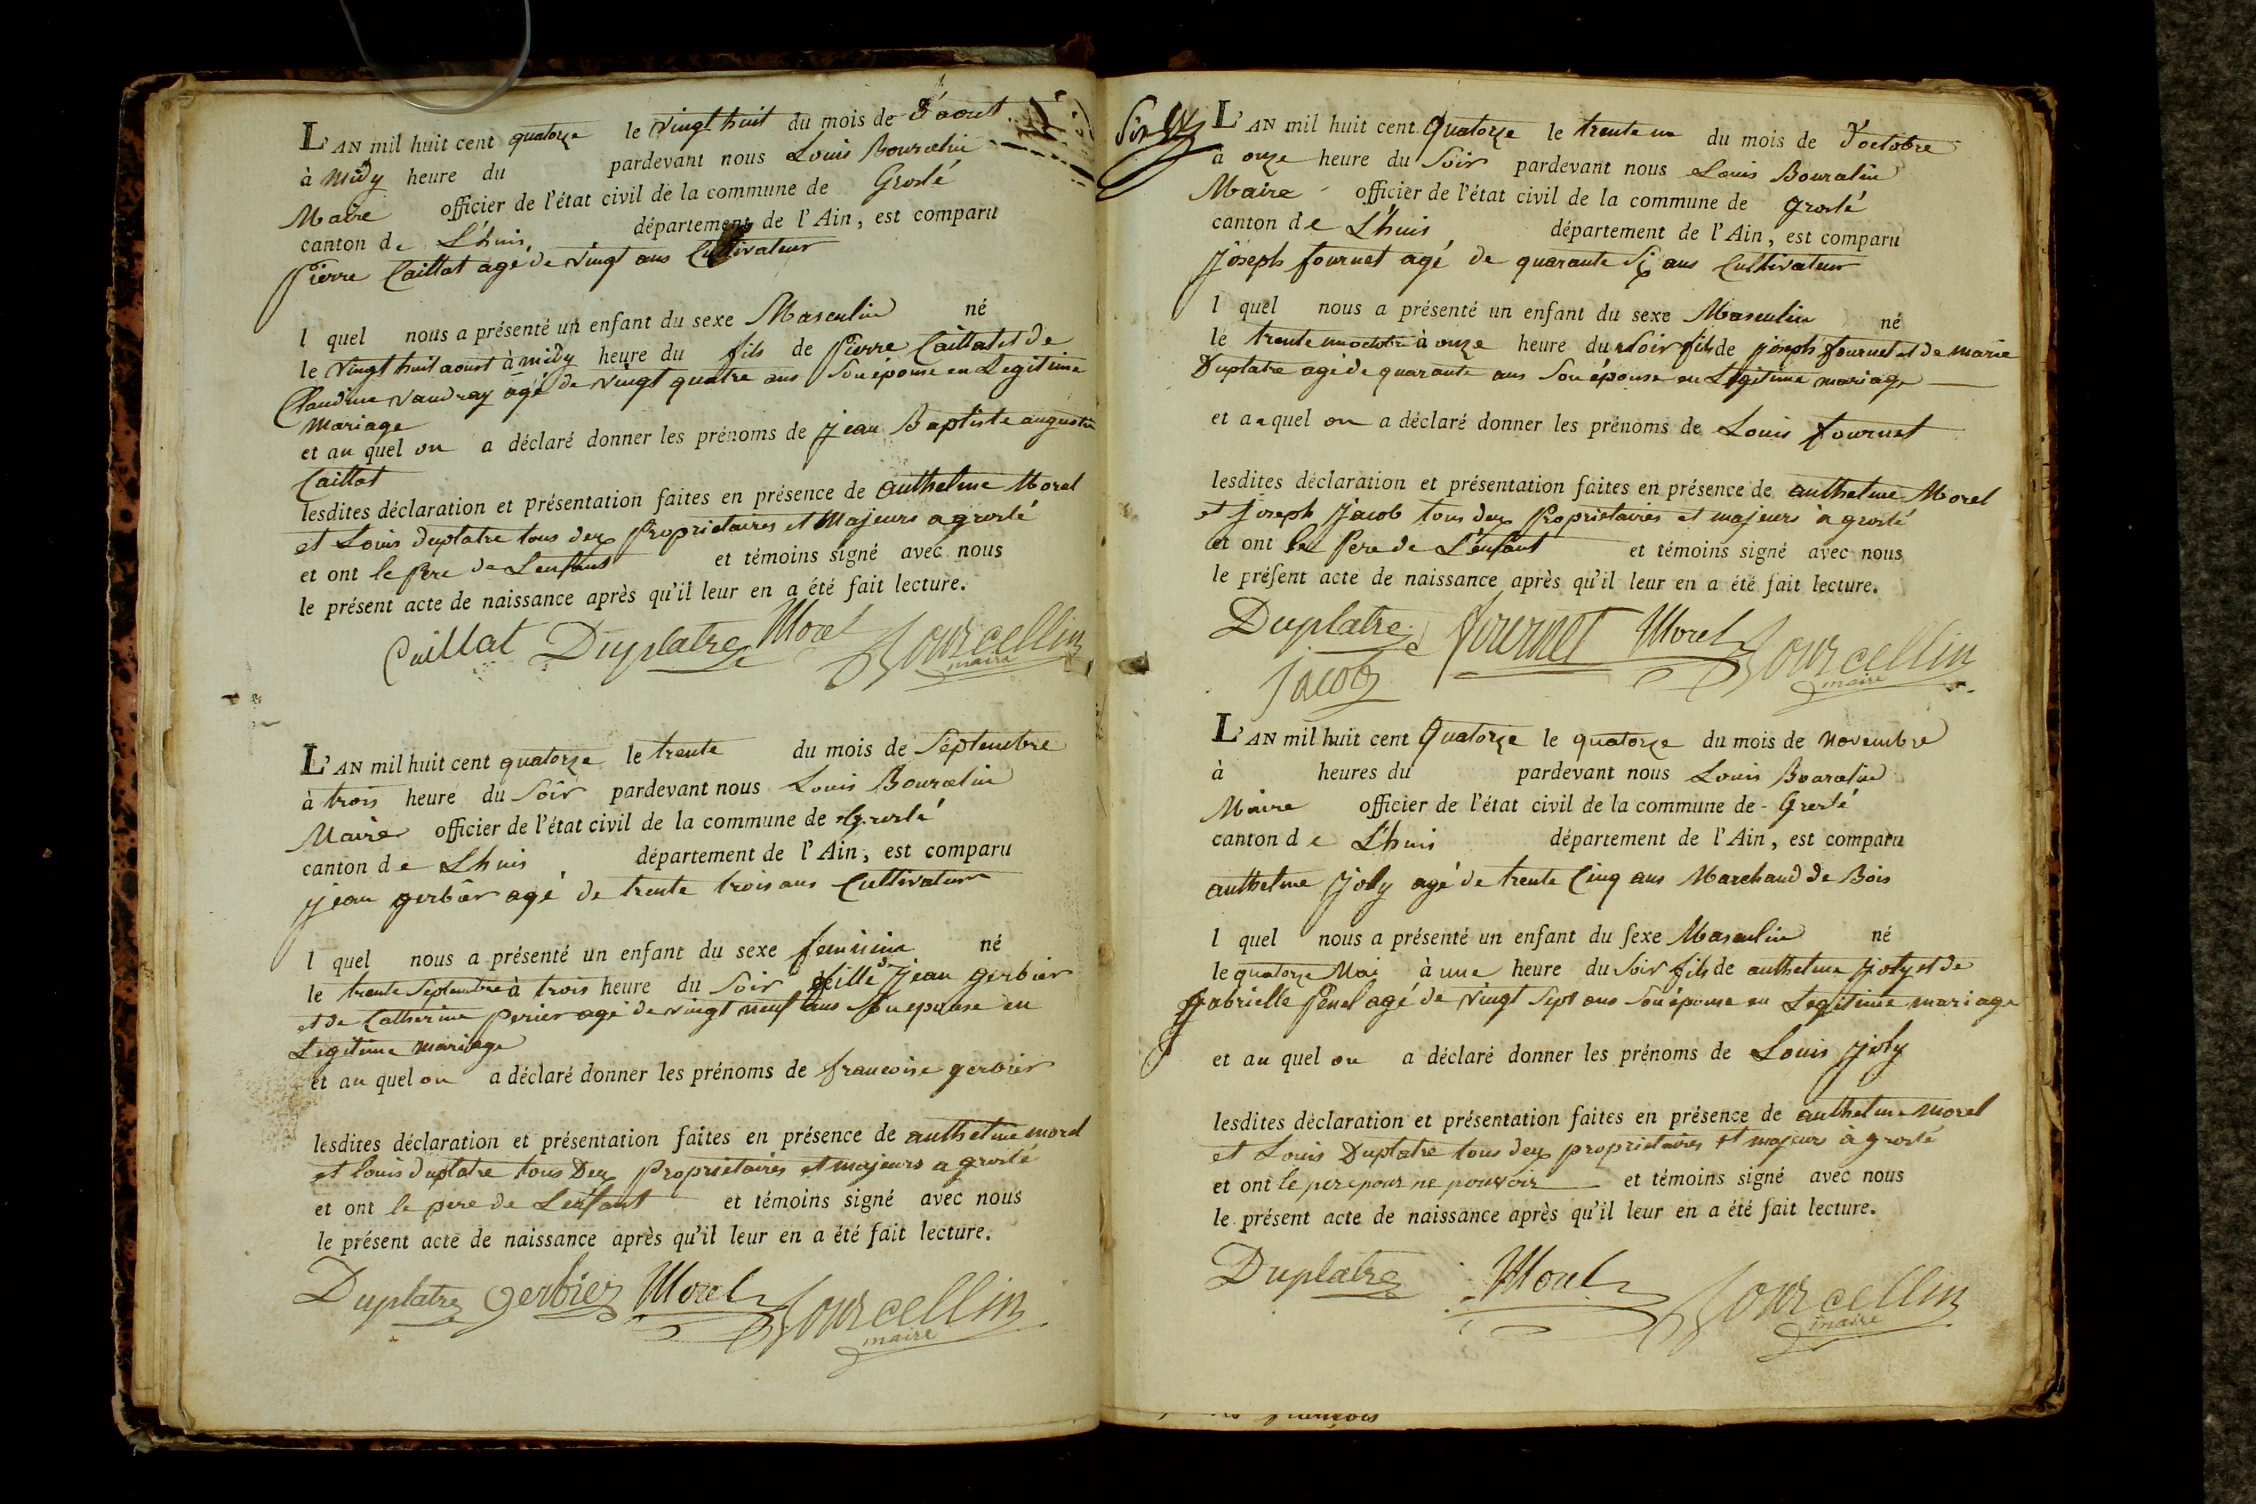 L'AN mil huit cent quatorze le vingt huit du mois de d'aout
à midy heure du pardevant nous Louis Bourcelin
Maire officier de l'état civil de la commune de Groslé
canton de L'huis département de l'Ain, est comparu
Pierre Caillat agé de vingt ans Cultivateur
l quel nous a présenté un enfant du sexe Masculin né
le vingt huit aoust à midy heure du fils de Pierre Caillat et de
Claudine Vaudray agé de vingt quatre ans Son épouse en Legitime
Mariage
et au quel on a déclaré donner les prénoms de jean Baptiste augustin
Caillat
lesdites déclaration et présentation faites en présence de authelme Morel
et Louis duplatre tous deux Proprietaires et Majeurs a groslé
et ont le Pere de Lenfant et témoins signé avec nous
le présent acte de naissance après qu'il leur en a été fait lecture.
Caillat Duplatre Morel Bourcellin
maire
L'AN mil huit cent quatorze le trente du mois de Septembre
à trois heure du Soir pardevant nous Louis Bourcelin
Maire officier de l'état civil de la commune de Groslé
canton de Lhuis département de l'Ain, est comparu
jean gerbier agé de trente trois ans Cultivateur
l quel nous a présenté un enfant du sexe feminin né
le trente Septembre à trois heure du Soir fille de jean gerbier
et de Catherine perier agé de vingt neuf ans Son epouse en
Legitime mariage
et au quel on a déclaré donner les prénoms de francoise gerbier
lesdites déclaration et présentation faites en présence de authelme morel
et louis duplatre tous Deux Proprietaires et majeurs a groslé
et ont le pere de Lenfant et témoins signé avec nous
le présent acte de naissance après qu'il leur en a été fait lecture.
Duplatre gerbier Morel Bourcellin
maire
Six
L'AN mil huit cent Quatorze le trente un du mois de d'octobre
à onze heure du Soir pardevant nous Louis Bourcelin
Maire officier de l'état civil de la commune de groslé
canton de L'huis département de l'Ain, est comparu
joseph fournet agé de quarante Six ans Cultivateur
l quel nous a présenté un enfant du sexe Masculin né
le trente un octobre à onze heure du Soir fils de joseph fournet et de marie
Duplatre agé de quarante ans Son épouse en Legitime mariage
et a quel on a déclaré donner les prénoms de Louis fournet
lesdites déclaration et présentation faites en présence de authelme Morel
et joseph jacob tous deux Proprietaires et majeurs à groslé
et ont le Pere de L'enfant et témoins signé avec nous
le présent acte de naissance après qu'il leur en a été fait lecture.
Duplatre fournet Morel Bourcellin
jacob maire
L'AN mil huit cent Quatorze le quatorze du mois de novembre
à heures du pardevant nous Louis Bourcelin
Maire officier de l'état civil de la commune de Groslé
canton de L'huis département de l'Ain, est comparu
authelme joly agé de trente Cinq ans Marchand de Bois
l quel nous a présenté un enfant du sexe Masculin né
le quatorze Mai à une heure du Soir fils de authelme joly et de
gabrielle Penel agé de vingt Sept ans Son épouse en Legitime mariage
et au quel on a déclaré donner les prénoms de Louis joly
lesdites déclaration et présentation faites en présence de authelme morel
et Louis Duplatre tous deux proprietaires et majeurs à groslé
et ont le pere pour ne pouvoir et témoins signé avec nous
le présent acte de naissance après qu'il leur en a été fait lecture.
Duplatre Morel Bourcellin
maire